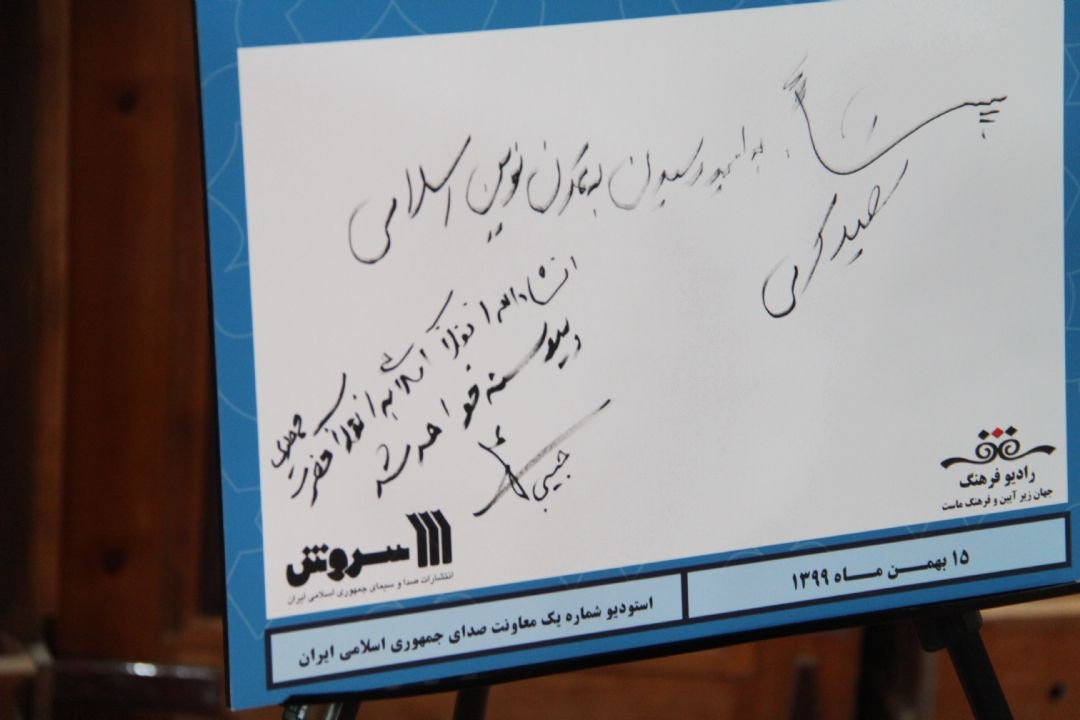 به امید رسیدن به تمدن نوین اسلامی
انشاءالله انقلاب اسلامی به انقلاب حضرت مهدی
پیوسته خواهد شد
حبیبی
رادیو فرهنگ
جهان زیر آیین و فرهنگ ماست
سروش
انتشارات صدا و سیمای جمهوری اسلامی ایران
۱۵ بهمن ماه ۱۳۹۹
استودیو شماره یک معاونت صدای جمهوری اسلامی ایران